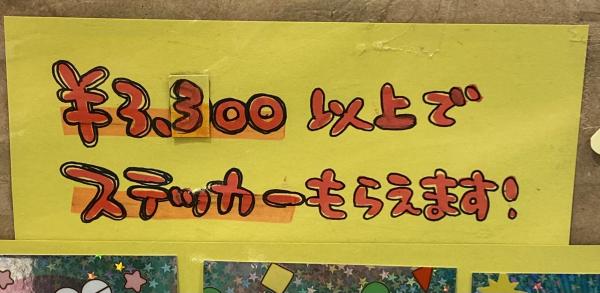 ¥3,300 以上で
ステッカーもらえます!